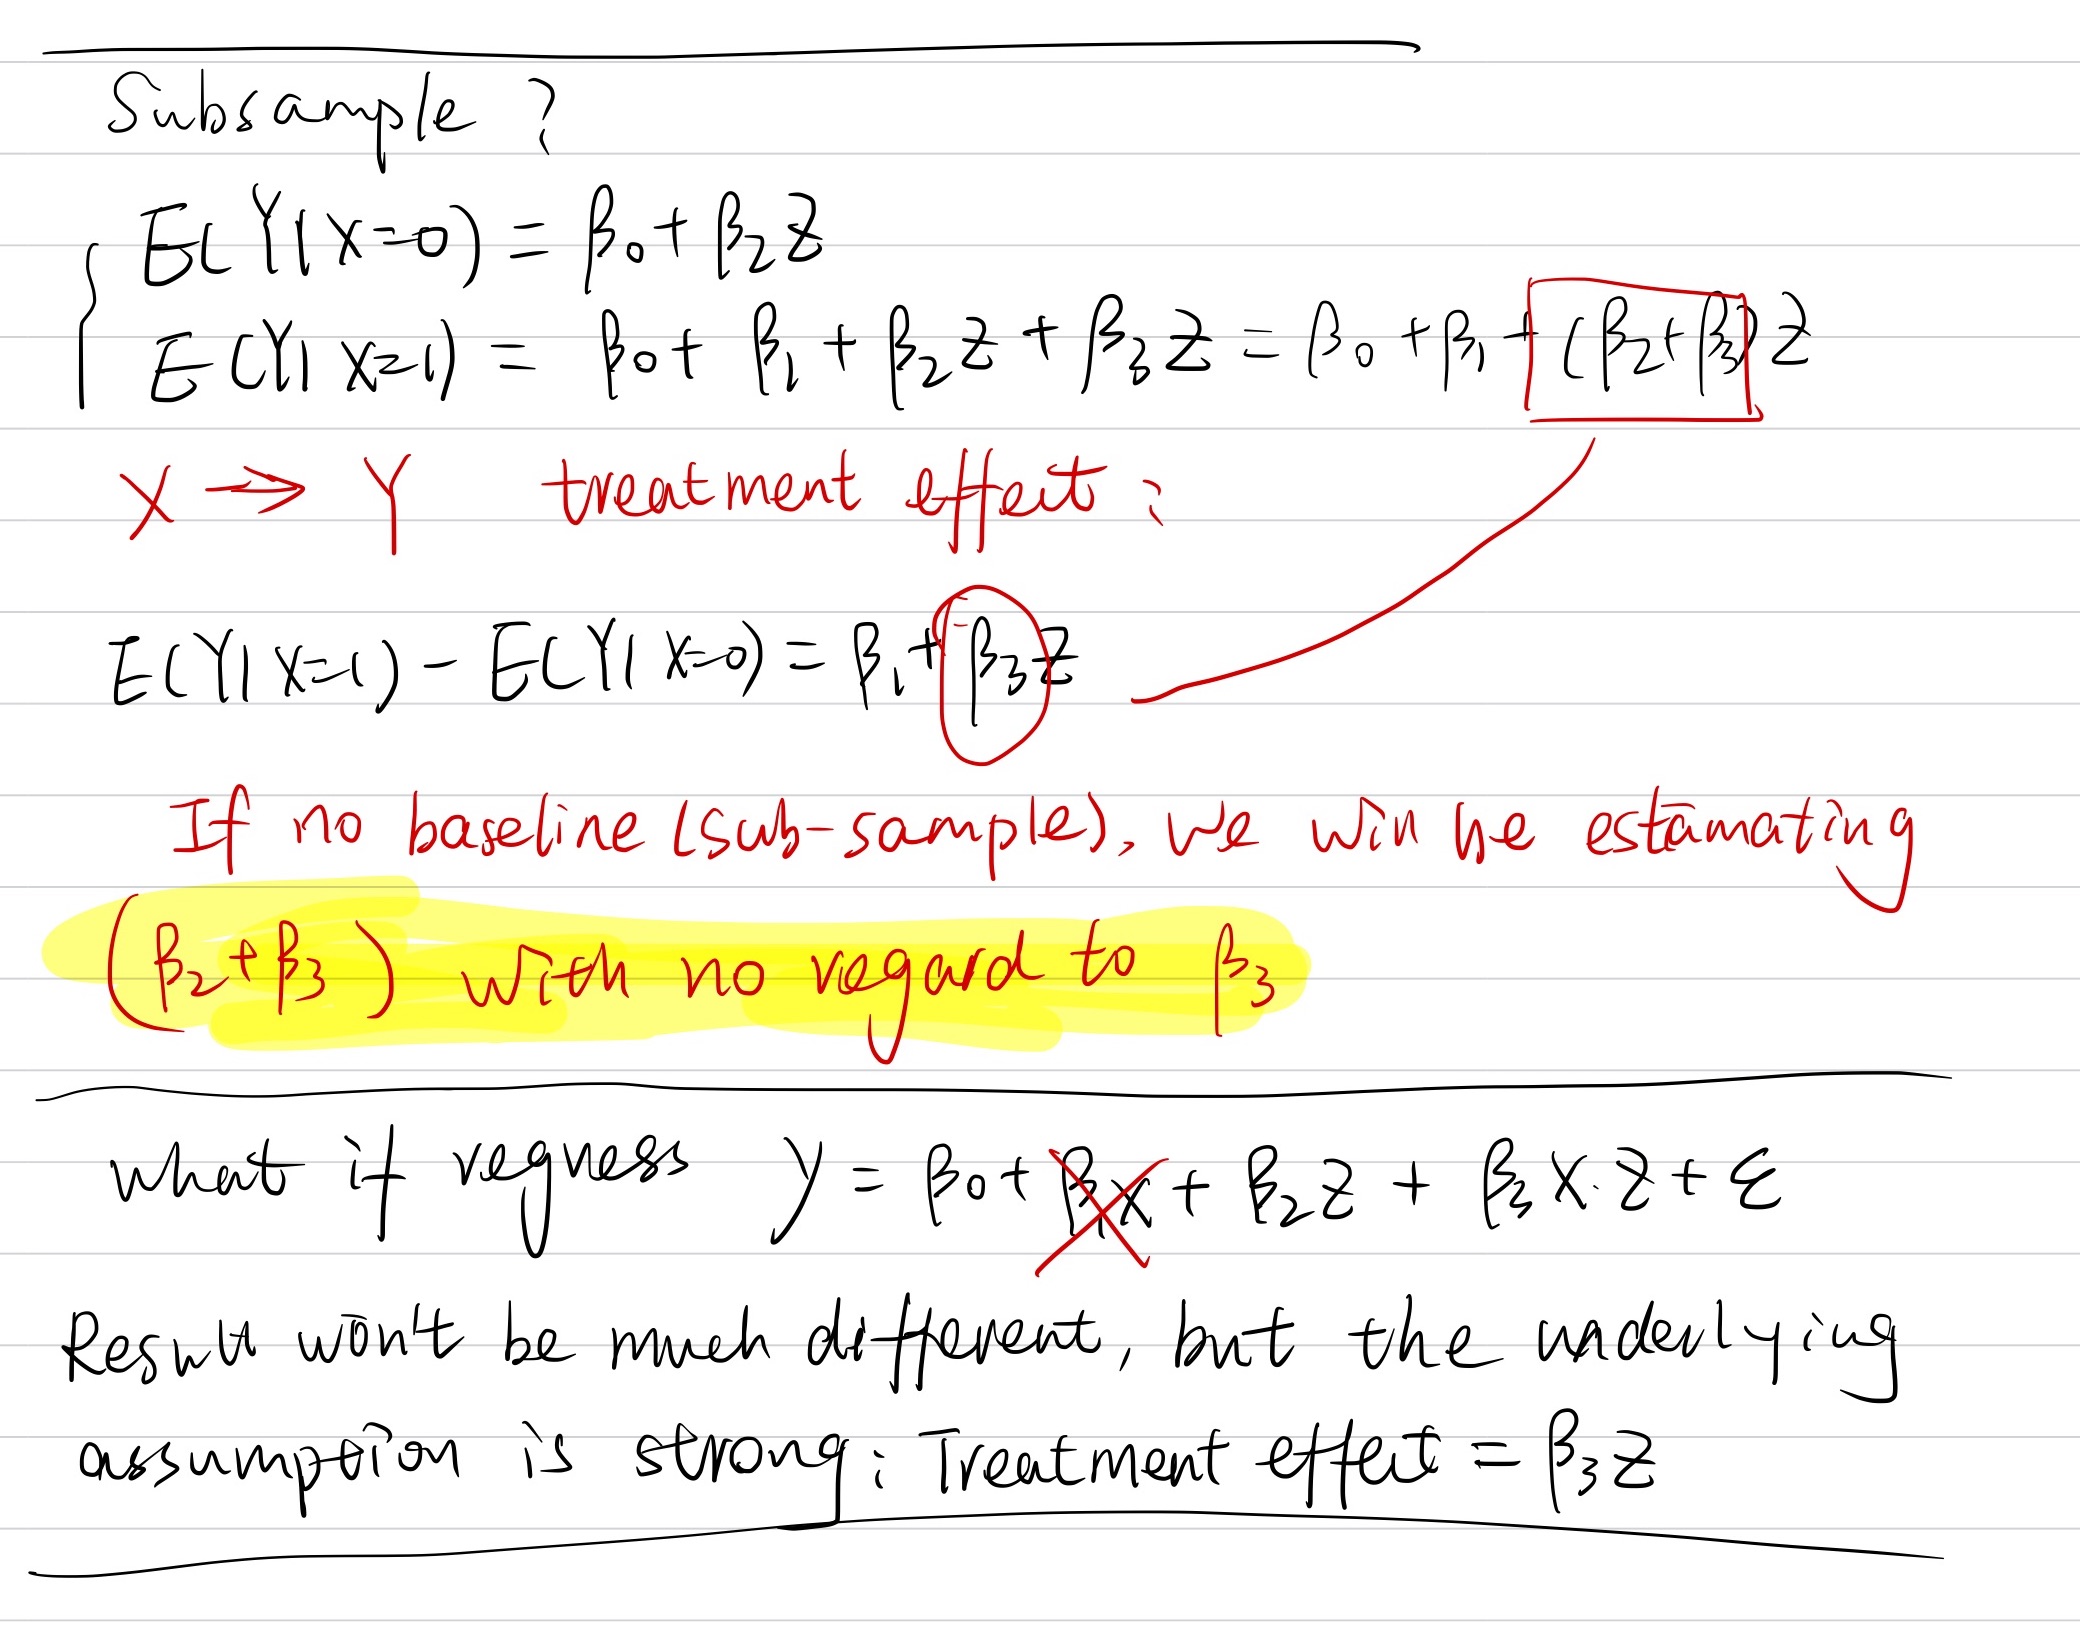 Subsample?
E(Y|X=0) = β₀+ β₂Z
E(Y|X=1) = β₀+ β₁ + β₂Z + β₃Z = β₀ + β₁ + (β₂+β₃)Z
X → Y treatment effect:
E(Y|X=1) - E(Y|X=0) = β₁+ β₃Z
If no baseline (sub-sample), we will be estamating
(β₂+β₃) with no regard to β₃
what if regress y = β₀+ β₁X + β₂Z + β₃X·Z + ε
Result won't be much different, but the underlying
assumption is strong: Treatment effect = β₃Z